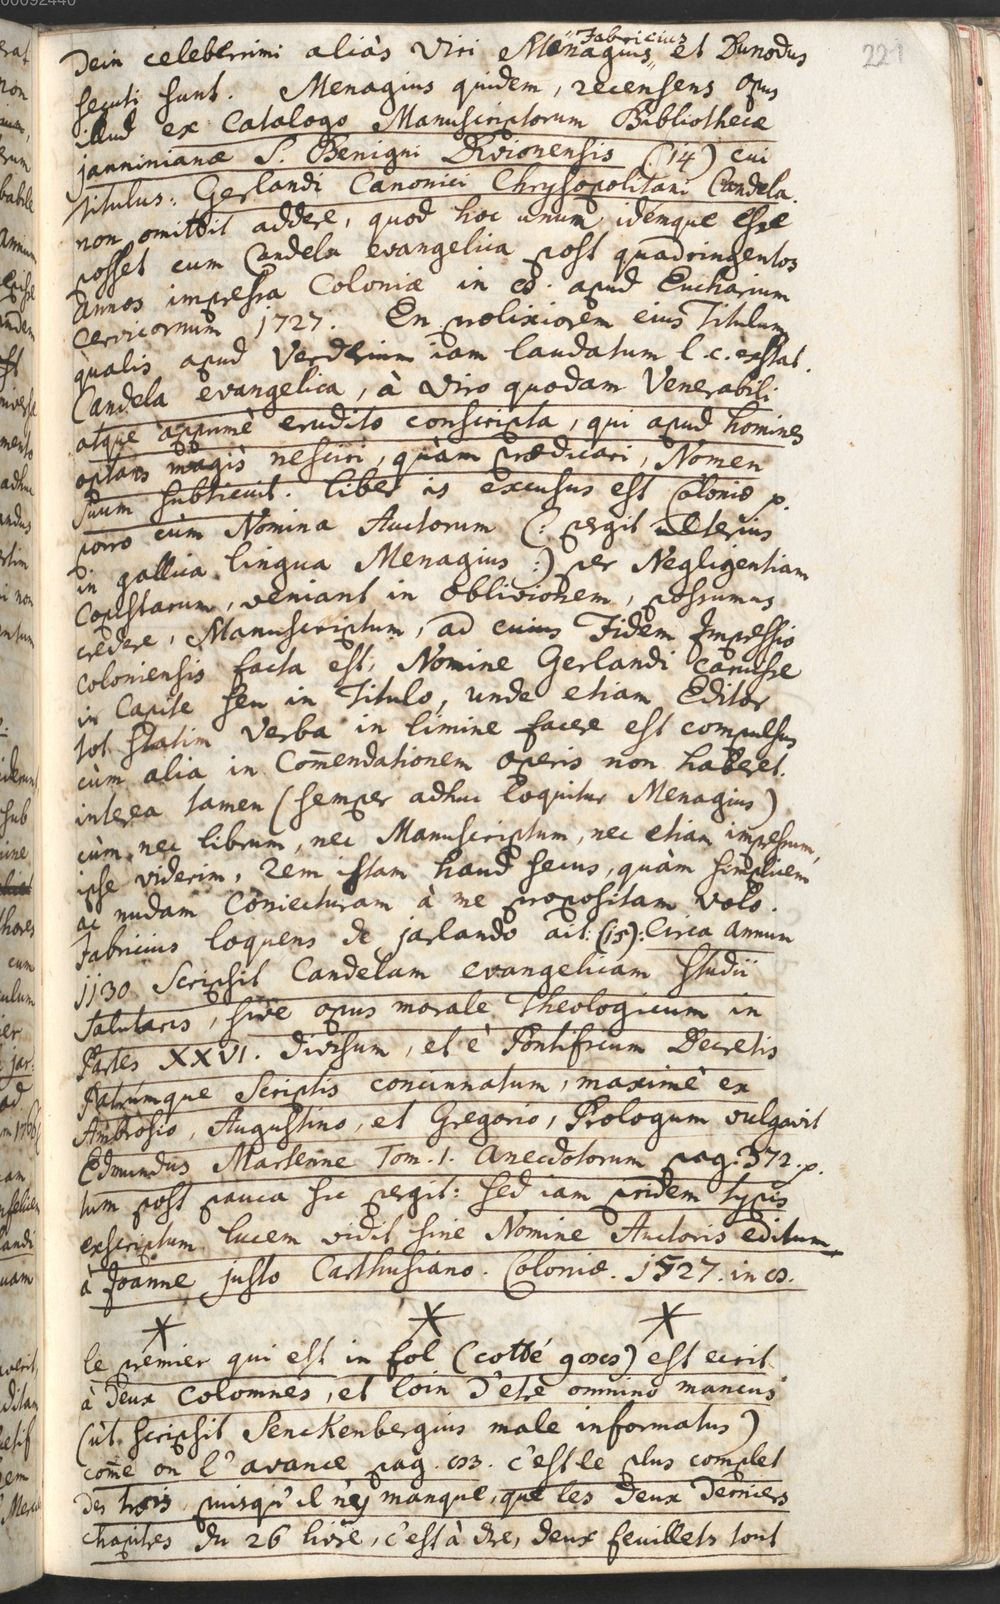 00092440
221
Dein celeberrimi aliàs Viri Menagius, Fabricius et Dunodus
secuti sunt. Menagius quidem, recensens opus
illud ex Catalogo Manuscriptorum Bibliothecæ
janninianæ S. Benigni Divionensis (14) cui
titulus: Gerlandi Canonici Chrysopolitani Candela.
non omittit addere, quod hoc unum, idémque esse
posset cum Candela evangelica post quadringentos
annos impressa Coloniæ in 8. apud Eucharium
Cervicornum 1727. En prolixiorem eius Titulum
qualis apud Verderium iam laudatum l. c. exstat.
Candela evangelica, à Viro quodam Venerabili
atque apprimè erudito conscripta, qui apud homines
optans magis nesciri, quàm prædicari, Nomen
suum subticuit. Liber is excusus est Coloniæ p.
porro cùm Nomina Auctorum (: pergit ulterius
in gallica lingua Menagius :) per Negligentiam
Copistarum, veniant in oblivionem, possumus
credere, Manuscriptum, ad cuius Fidem Impressio
coloniensis facta est, Nomine Gerlandi caruisse
in Capite seu in Titulo, unde etiam Editor
tot statim Verba in limine facere est compulsus
cùm alia in Com̄endationem operis non haberet.
interea tamen (semper adhuc loquitur Menagius)
cùm nec librum, nec Manuscriptum, nec etiam impressum,
ipse viderim, rem istam haud secus, quam simplicem
ac nudam Coniecturam à me propositam volo.
Fabricius loquens de jarlando ait: (15): Circa annum
1130 scripsit Candelam evangelicam studii
salutaris, sive opus morale Theologicum in
Partes XXVI. divisum, et è Pontificum Decretis
Patrumque Scriptis concinnatum, maximè ex
Ambrosio, Augustino, et Gregorio, Prologum vulgavit
Edmundus Martenne Tom. 1. anecdotorum pag. 372. p.
tum post pauca sic pergit: sed iam pridem typis
exscriptum lucem vidit sine Nomine Auctoris editum
à Joanne justo Carthusiano. Coloniæ. 1527. in 8.
* * *
le premier qui est in fol (cotté 908) est ecrit
à deux colomnes, et loin d'etre omnino mancus
(ùt scripsit Senckenbergius male informatus)
com̄e on l'avance pag. 83. c'est le plus complet
des trois, puisqu'il n'ey manque, que les deux derniers
chapitres du 26 livre, c'est à dire, deux feuillets tout